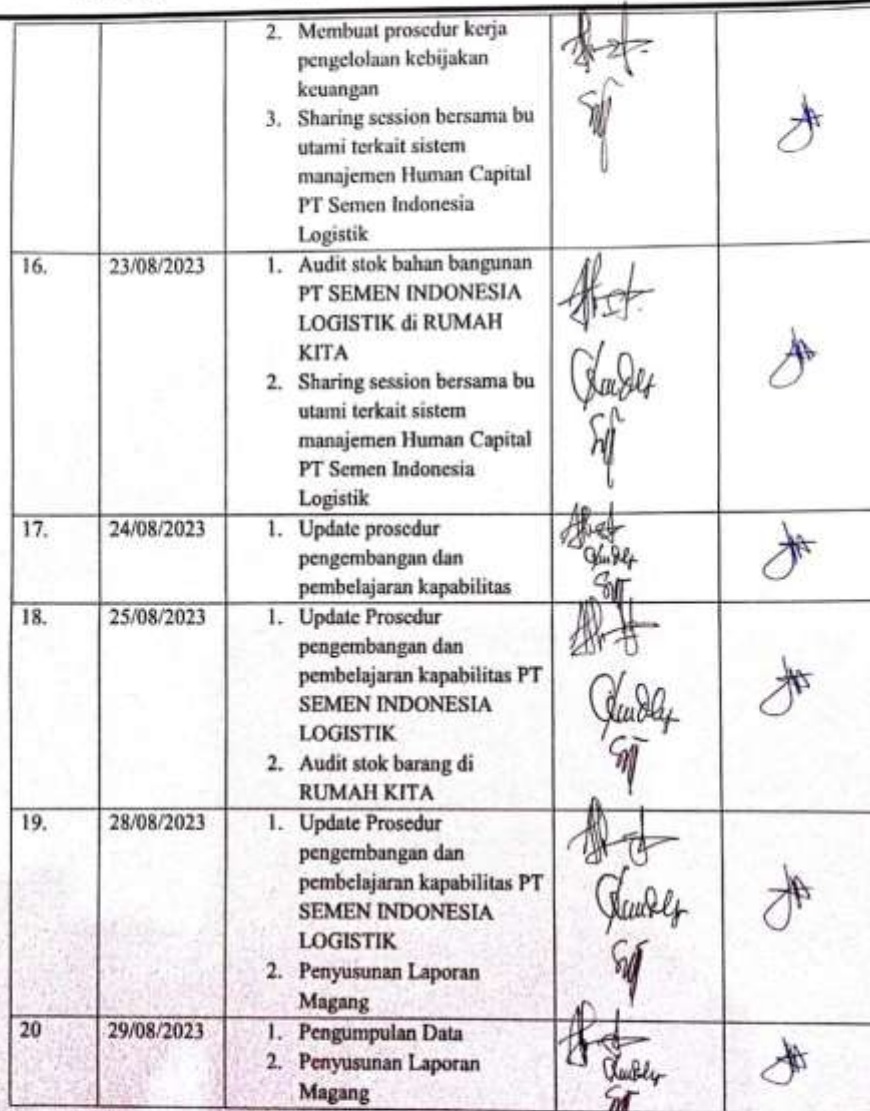 2. Membuat prosedur kerja
pengelolaan kebijakan
keuangan
3. Sharing session bersama bu
utami terkait sistem
manajemen Human Capital
PT Semen Indonesia
Logistik
16. 23/08/2023 1. Audit stok bahan bangunan
PT SEMEN INDONESIA
LOGISTIK di RUMAH
KITA
2. Sharing session bersama bu
utami terkait sistem
manajemen Human Capital
PT Semen Indonesia
Logistik
17. 24/08/2023 1. Update prosedur
pengembangan dan
pembelajaran kapabilitas
18. 25/08/2023 1. Update Prosedur
pengembangan dan
pembelajaran kapabilitas PT
SEMEN INDONESIA
LOGISTIK
2. Audit stok barang di
RUMAH KITA
19. 28/08/2023 1. Update Prosedur
pengembangan dan
pembelajaran kapabilitas PT
SEMEN INDONESIA
LOGISTIK
2. Penyusunan Laporan
Magang
20 29/08/2023 1. Pengumpulan Data
2. Penyusunan Laporan
Magang